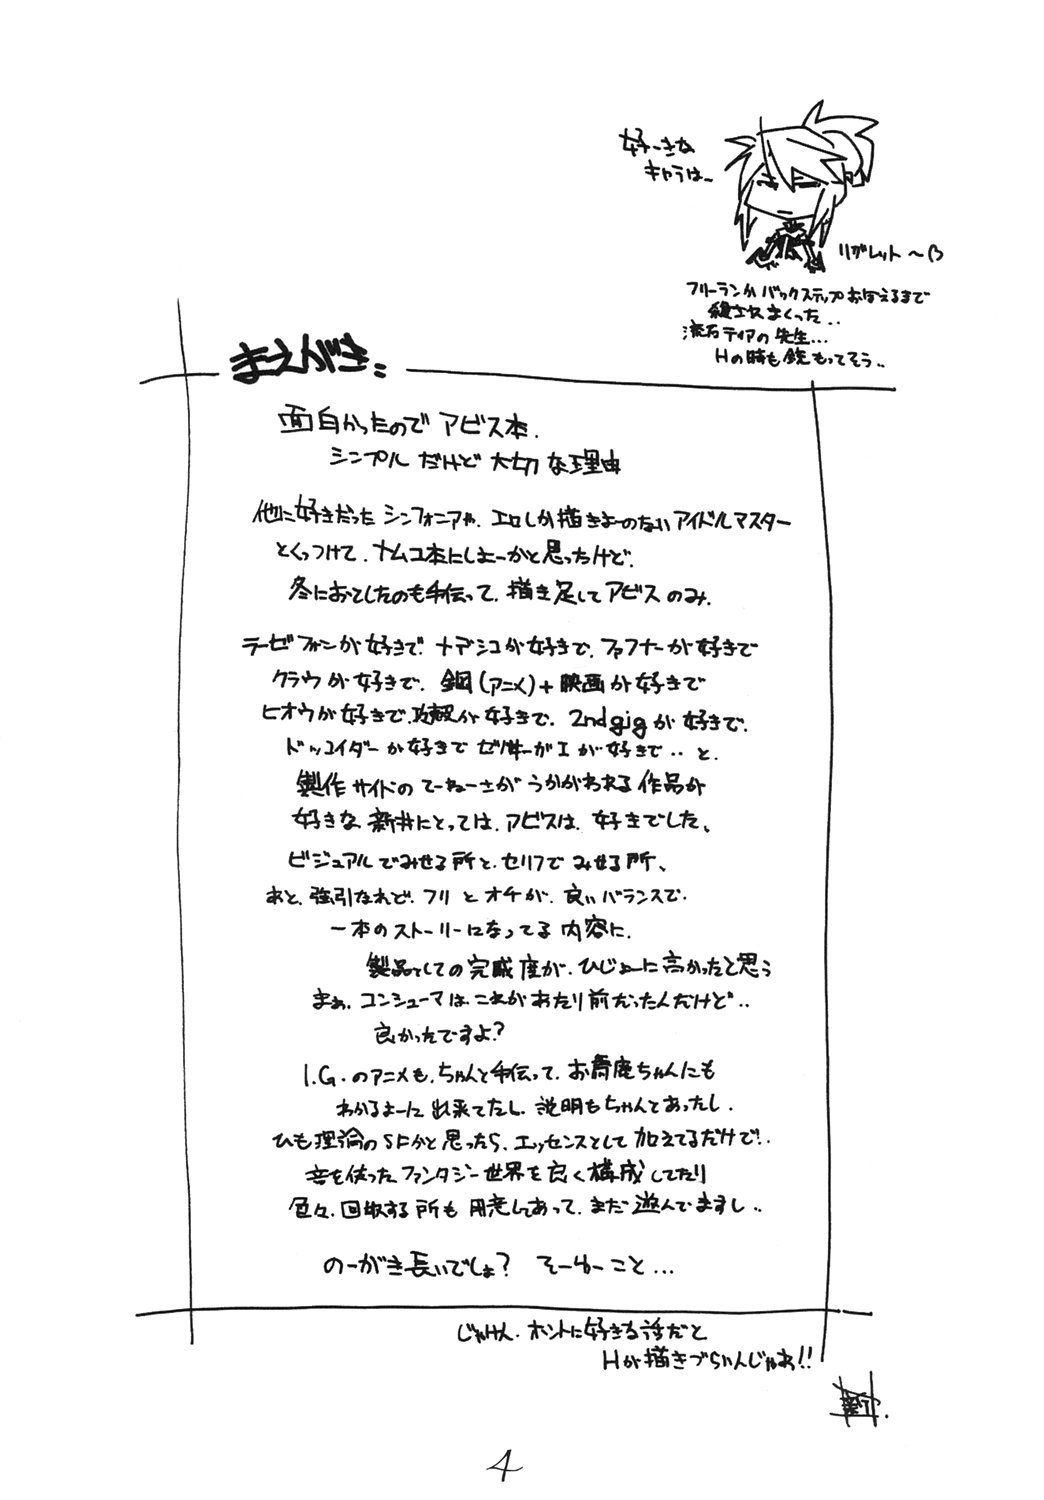 好ーきな
キャラはー
リグレット～
フリーランかバックステップおぼえるまで
殺されまくった..
流石ティアの先生...
Hの時も銃もってそう..
まえがき..
面白かったのでアビス本.
シンプルだけど大切な理由
他に好きだったシンフォニアや、エロしか描きよーのないアイドルマスター
とくっつけて、ナムコ本にしよーかと思ったけど.
冬におとしたのも手伝って、描き足してアビスのみ.
ラーゼフォンが好きで、ナデシコが好きで、ファフナーが好きで
クラウが好きで、鋼(アニメ)+映画が好きで
ヒオウが好きで、攻殻が好きで、2nd gigが好きで、
ドッコイダーが好きでゼノギーがIが好きで..と、
製作サイドのてーねーさがうかがわれる作品が
好きな新井にとっては、アビスは、好きでした、
ビジュアルでみせる所と、セリフでみせる所、
あと、強引なれど、フリとオチが、良いバランスで、
一本のストーリーになってる内容に、
製品としての完成度が、ひじょーに高かったと思う
まぁ、コンシューマはこれがあたり前だったんだけど..
良かったですよ?
I.G.のアニメも、ちゃんと手伝って、お舞庵ちゃんにも
わかるよーに出来てたし、説明もちゃんとあったし、
ひも理論のSFかと思ったら、エッセンスとして加えてるだけで..
音を使ったファンタジー世界を良く構成してたり
色々、回収する所も用意してあって、まだ遊んでますし..
のーがき長いでしょ? そーゆーこと...
じゃけん、ホントに好きな話だと
Hが描きづらいんじゃぁ!!
4